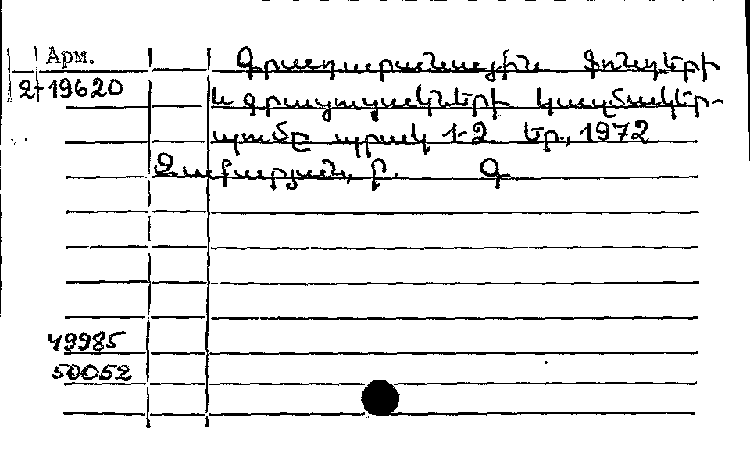 Арм.
2-19620
Գրադարանային ֆոնդերի
և գրացուցակների կազմակեր-
պումը պրակ 1-2 Եր., 1972
Զաքարյան, Բ. Գ
49985
50052